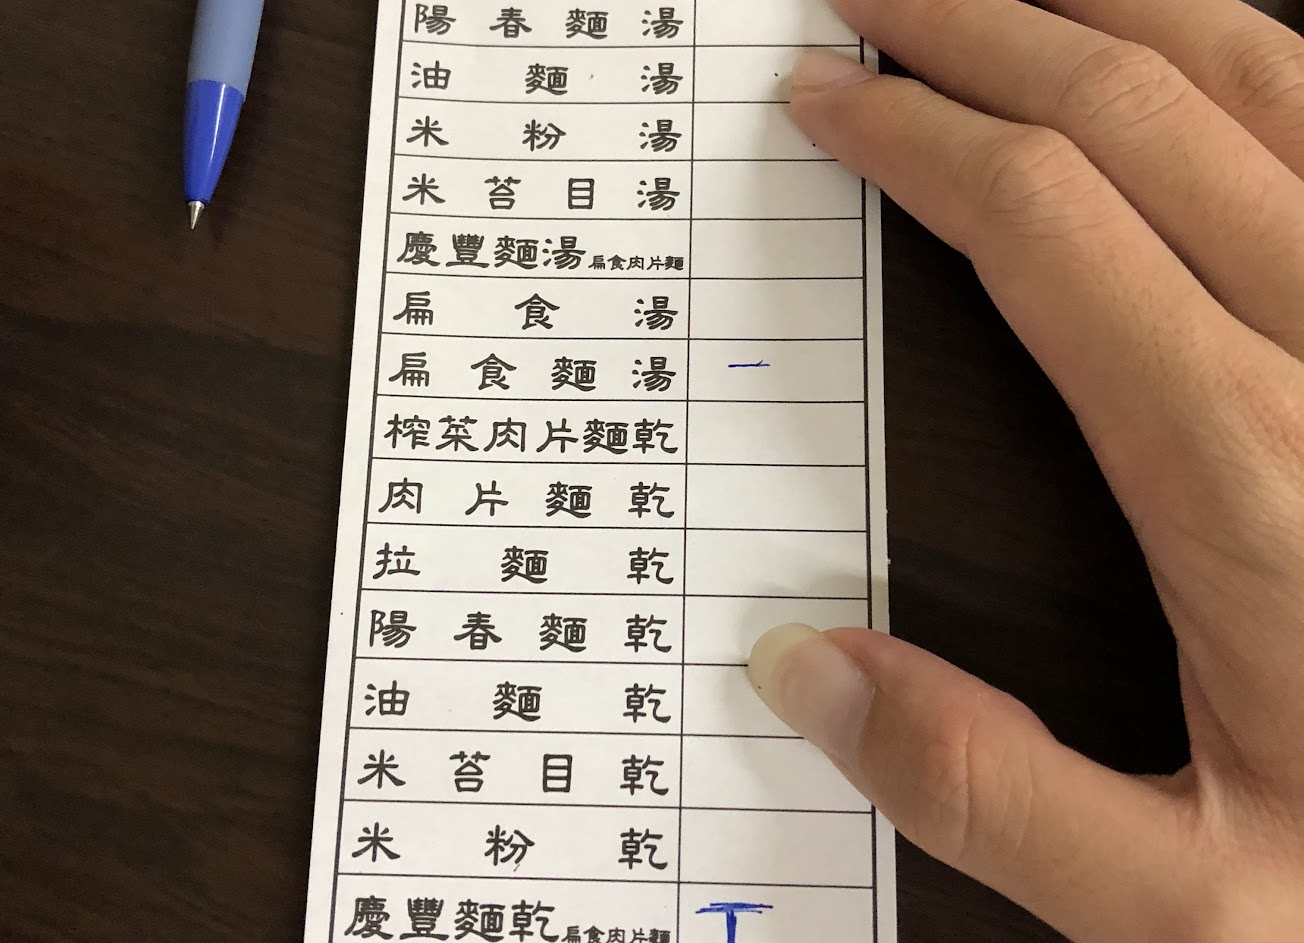 陽春麵湯
油麵湯
米粉湯
米苔目湯
慶豐麵湯扁食肉片麵
扁食湯
扁食麵湯 一
榨菜肉片麵乾
肉片麵乾
拉麵乾
陽春麵乾
油麵乾
米苔目乾
米粉乾
慶豐麵乾扁食肉片麵